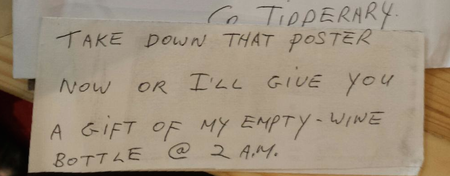 Co TIPPERARY.
TAKE DOWN THAT POSTER
NOW OR I'LL GIVE YOU
A GIFT OF MY EMPTY-WINE
BOTTLE @ 2 A.M.